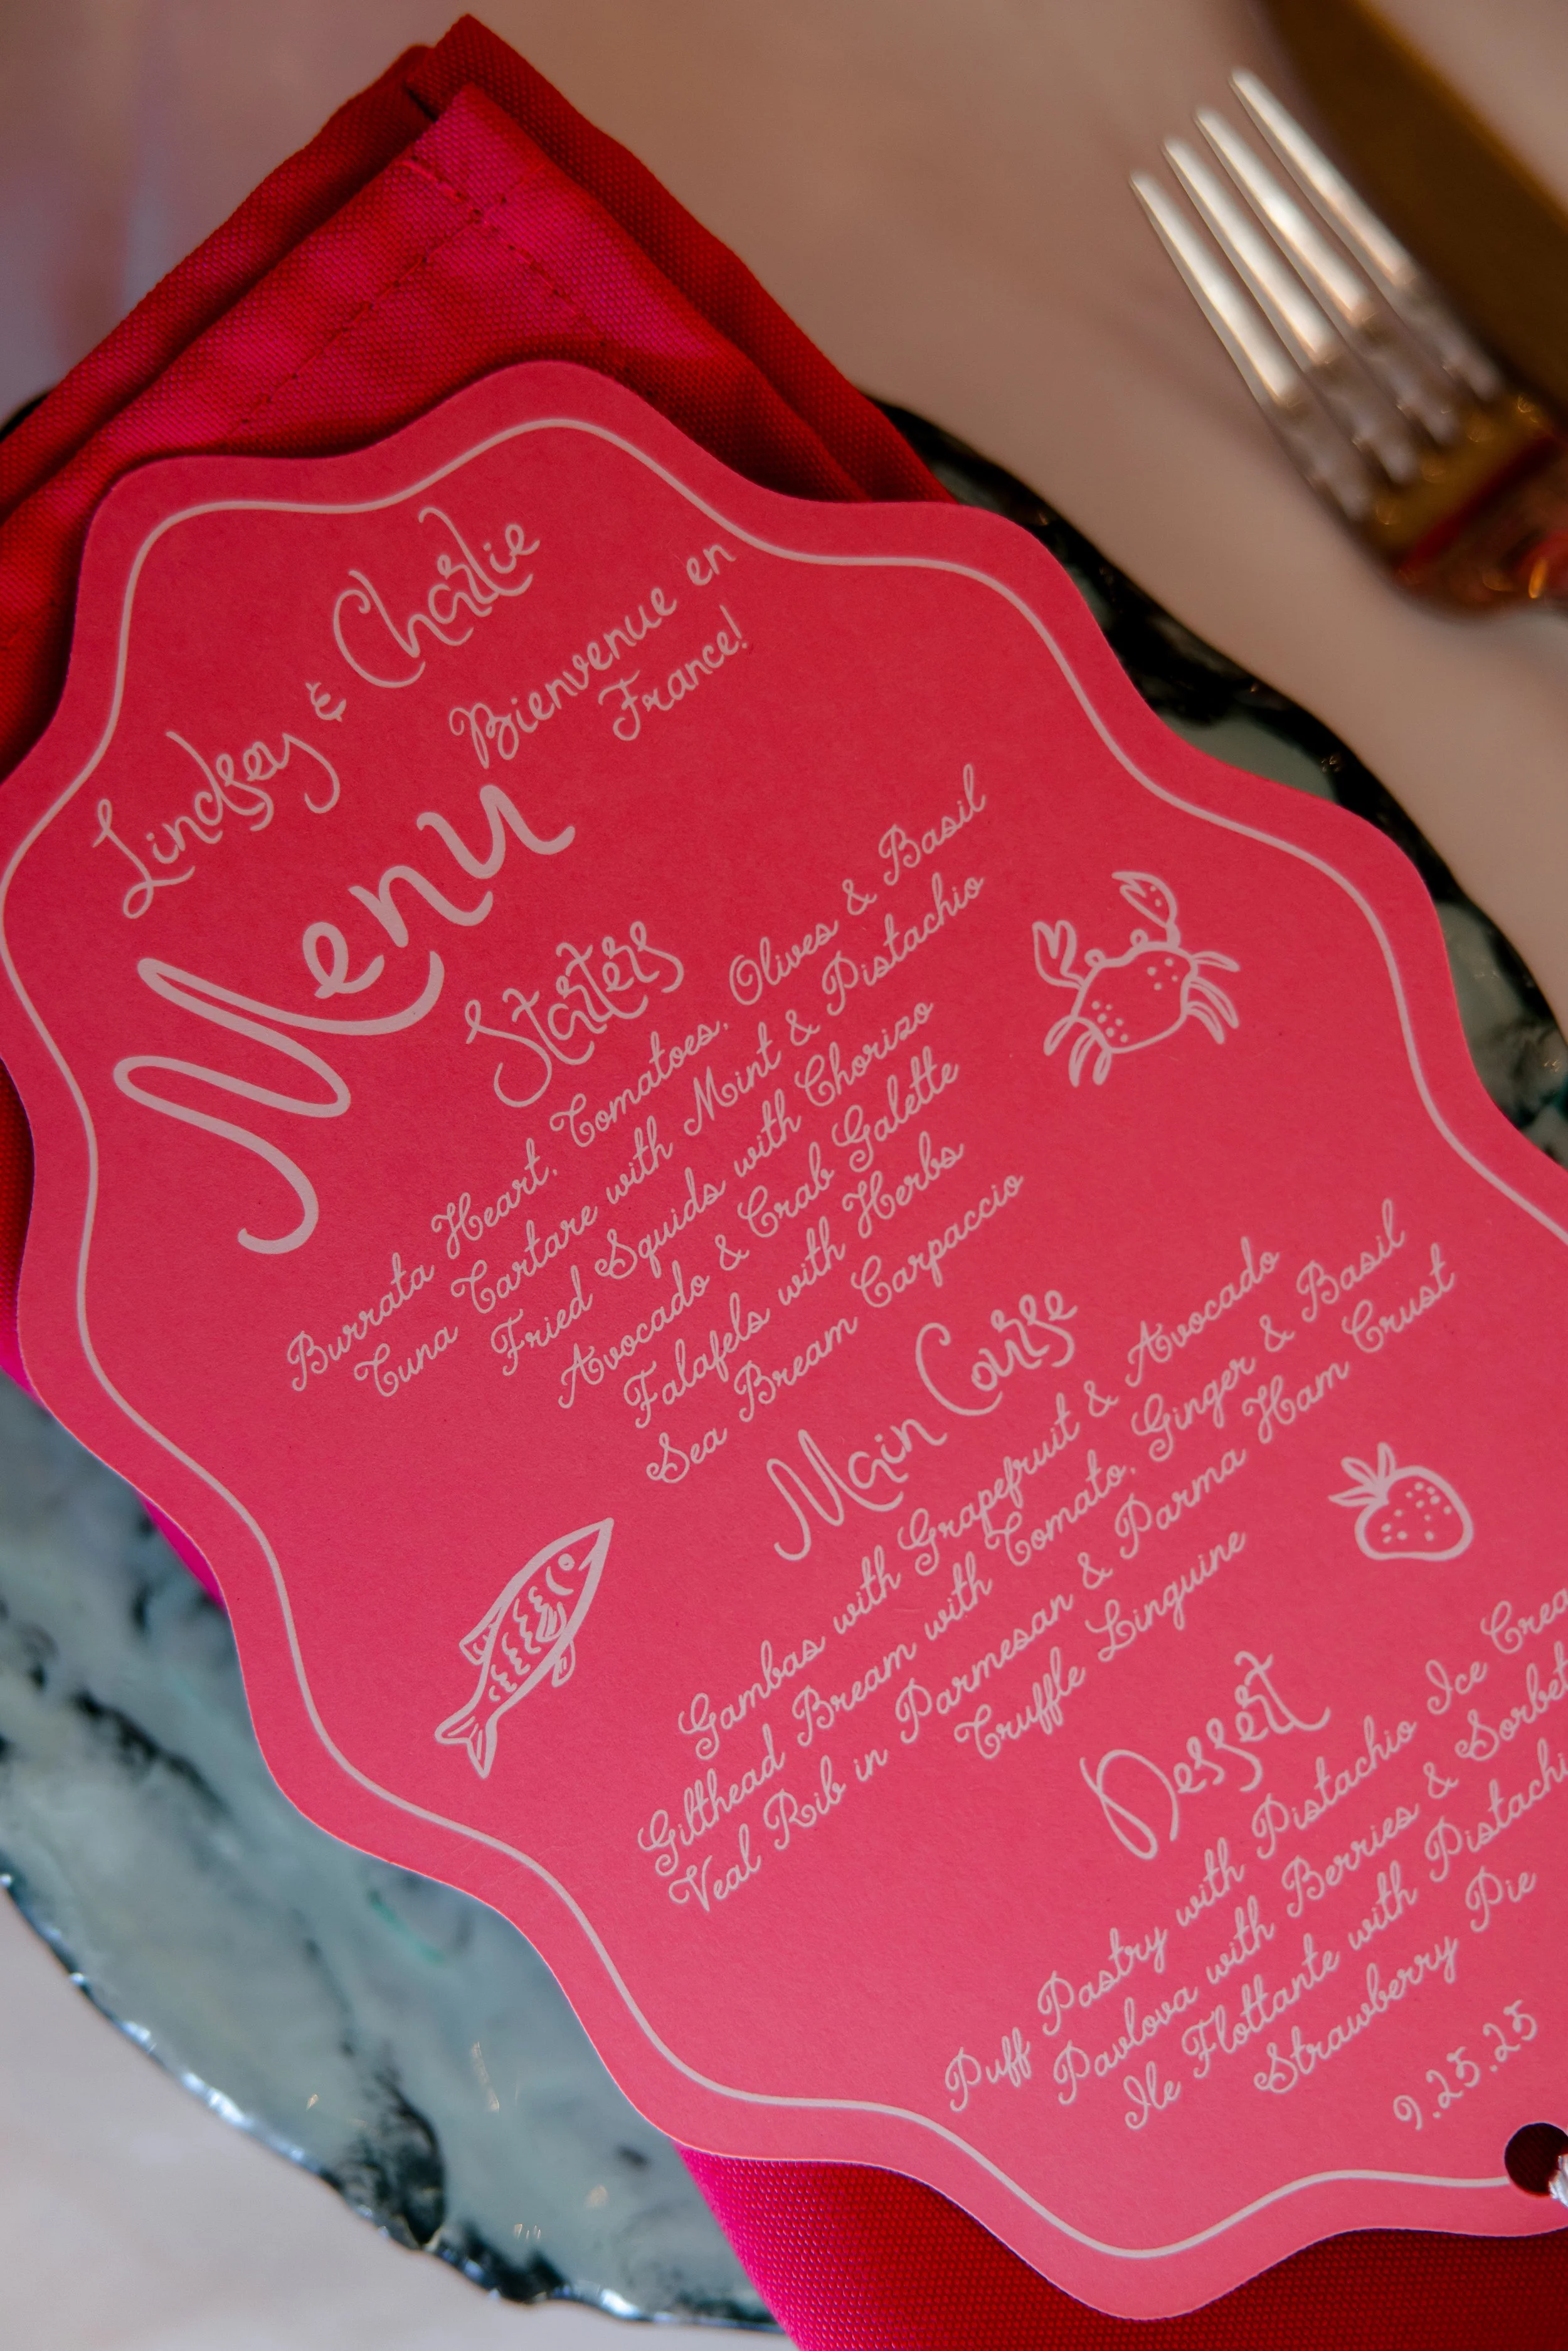 Lindsey & Charlie
Bienvenue en
France!
Menu
Starters
Burrata Heart, Tomatoes, Olives & Basil
Tuna Tartare with Mint & Pistachio
Fried Squids with Chorizo
Avocado & Crab Galette
Falafels with Herbs
Sea Bream Carpaccio
Main Course
Gambas with Grapefruit & Avocado
Gilthead Bream with Tomato, Ginger & Basil
Veal Rib in Parmesan & Parma Ham Crust
Truffle Linguine
Dessert
Puff Pastry with Pistachio Ice
Pavlova with Berries &
Ile Flottante with
Strawberry Pie
9.25.25